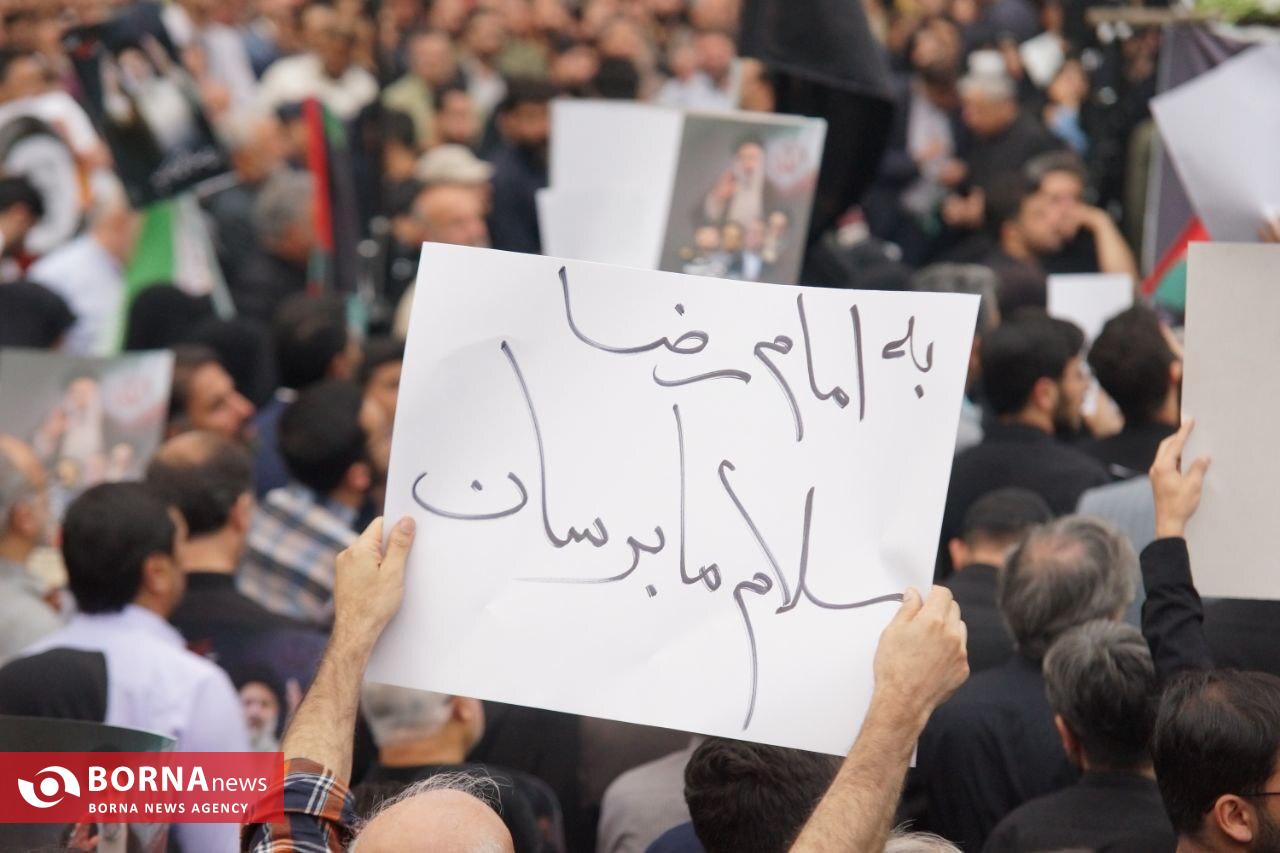 به امام رضا
سلام ما برسان
BORNAnews
BORNA NEWS AGENCY